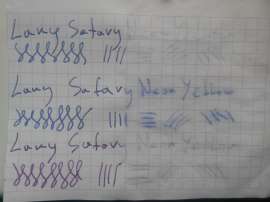 Lamy Safary
Lamy Safary Neon Yellow
Lamy Safary